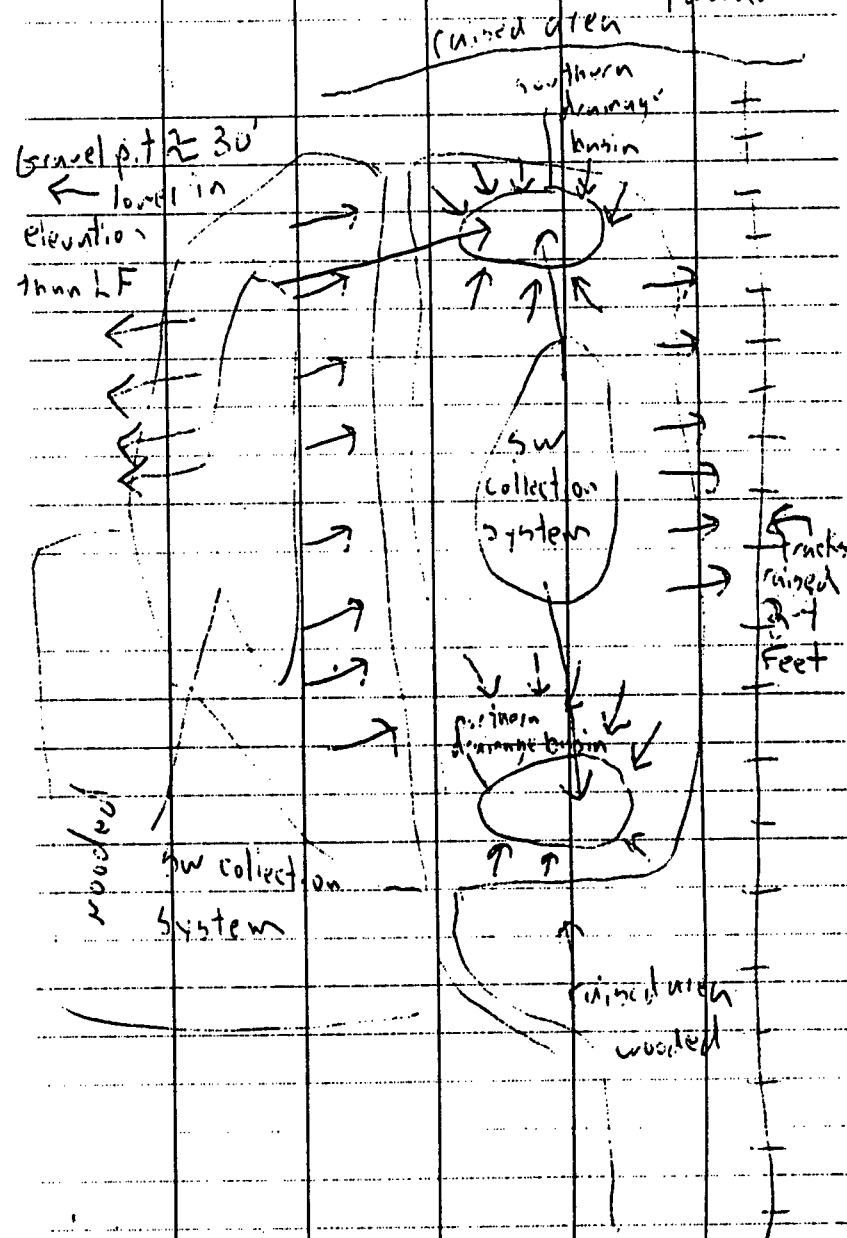 raised area
southern
drainage
basin
Gravel pit ≈ 30'
← lower in
elevation
than LF
SW
collection
system
Tracks
raised
Feet
northern
drainage basin
wooded
SW collection
System
raised area
wooded